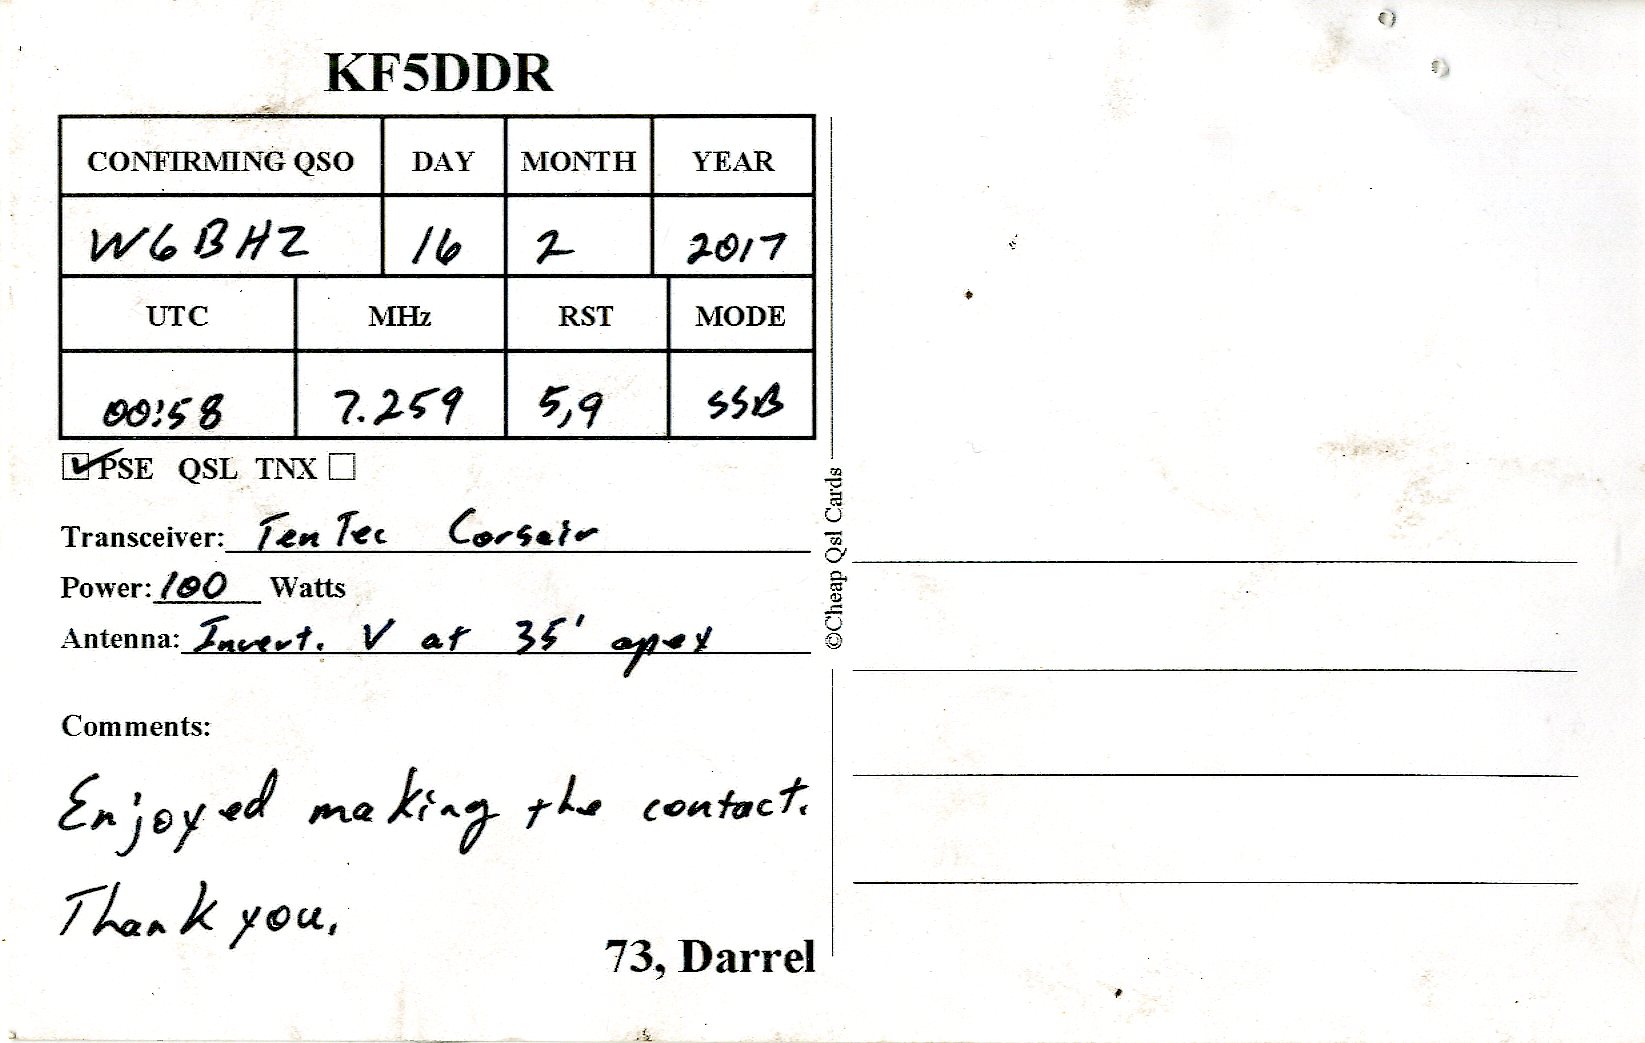 KF5DDR
CONFIRMING QSO DAY MONTH YEAR
W6BHZ 16 2 2017
UTC MHz RST MODE
00:58 7.259 5,9 SSB
PSE QSL TNX
Transceiver: TenTec Corsair
Power: 100 Watts
Antenna: Invert. V at 35' apex
Comments:
Enjoyed making the contact.
Thank you.
73, Darrel
©Cheap Qsl Cards